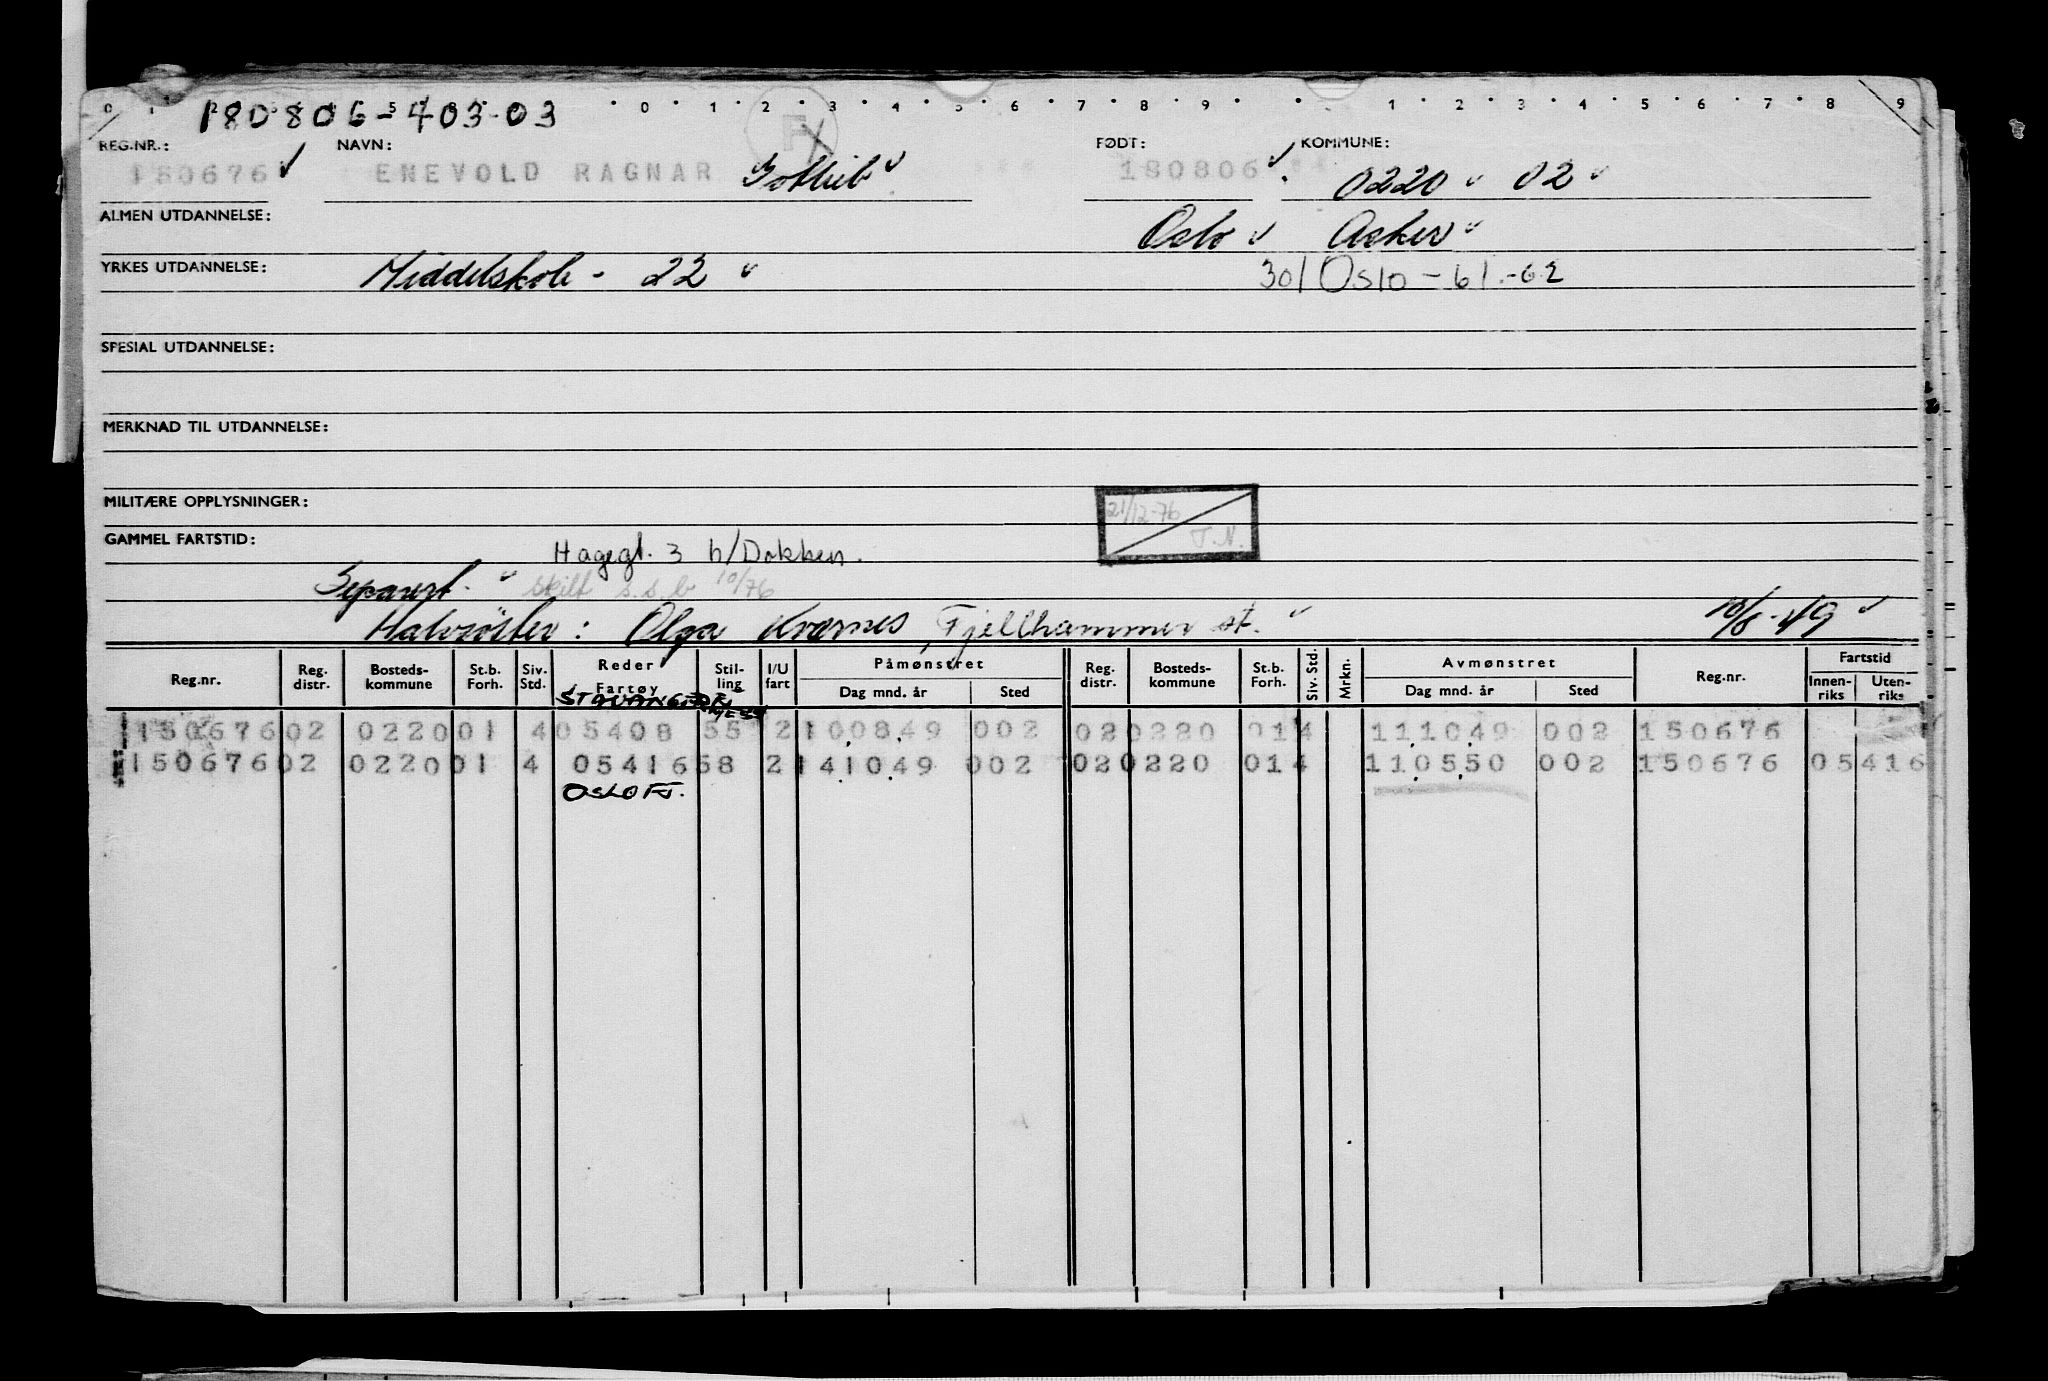 0 1 2 5 0 1 2 3 4 5 6 7 8 9 1 2 3 4 5 6 7 8 9
180806-403-03
REG.NR.: NAVN: FØDT: KOMMUNE:
150676 ENEVOLD RAGNAR Gottlieb 180806 0220 02
ALMEN UTDANNELSE: Oslo Asker
YRKES UTDANNELSE: Middelskole - 22 301 Oslo - 61.-62
SPESIAL UTDANNELSE:
MERKNAD TIL UTDANNELSE:
MILITÆRE OPPLYSNINGER: 21/12-76
T.N.
GAMMEL FARTSTID: Hagegt. 3 b/Dokken.
Separert. Skilt s.s.b 10/76
Halvsöster: Olga Kværnes, Fjellhammer st. 10/8-49
Reg.nr. Reg. distr. Bosteds-kommune St.b. Forh. Siv. Std. Reder Fartøy Stil-ling I/U fart Påmønstret Dag mnd. år Sted Reg. distr. Bosteds-kommune St.b. Forh. Siv. Std. Mrkn. Avmønstret Dag mnd. år Sted Reg.nr. Fartstid Innen-riks Uten-riks
STAVANGERFJ.
150676 02 0220 01 4 05408 55 2 100849 002 02 0220 01 4 111049 002 150676
150676 02 0220 01 4 05416 58 2 141049 002 02 0220 01 4 110550 002 150676 05416
OSLOFJ.